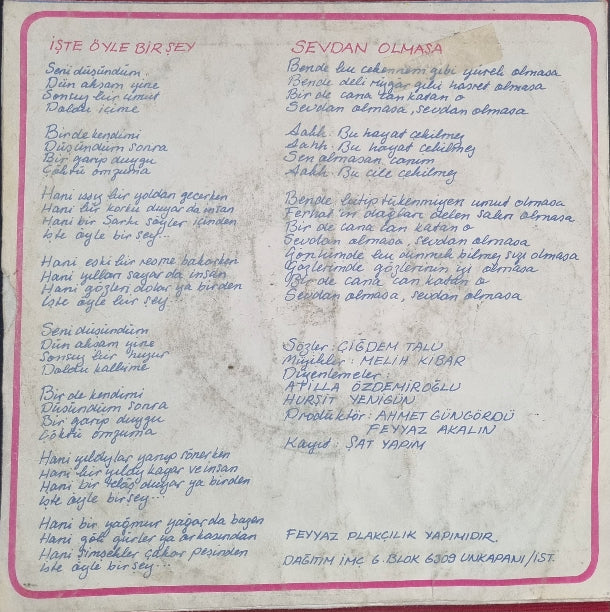 İŞTE ÖYLE BİR SEY
Seni düşündüm
Dün akşam yine
Sonsuz bir umut
Doldu içime
Birde kendimi
Düşündüm sonra
Bir garip duygu
Çöktü omzuma
Hani ıssız bir yoldan geçerken
Hani bir korku duyar da insan
Hani bir Şarkı söyler içinden
İşte öyle bir sey...
Hani eski bir resme bakarken
Hani yılları sayar da insan
Hani gözleri dolar ya birden
İşte öyle bir sey
Seni düşündüm
Dün akşam yine
Sonsuz bir huzur
Doldu kalbime
Bir de kendimi
Düşündüm sonra
Bir garip duygu
Çöktü omzuma
Hani yıldızlar yanıp sönerken
Hani bir yıldız kayar ve insan
Hani bir telâş duyar ya birden
İşte öyle bir sey...
Hani bir yağmur yağar da bazen
Hani gök gürler ya arkasından
Hani şimşekler çakar peşinden
İşte öyle bir sey...
SEVDAN OLMASA
Bende bu cehennem gibi yürek olmasa
Bende deli rüzgar gibi hasret olmasa
Bir de cana can katan o
Sevdan olmasa, sevdan olmasa
Aahh. Bu hayat çekilmez
Aahh. Bu hayat çekilmez
Sen olmasan canım
Aahh. Bu çile çekilmez
Bende bitip tükenmiyen umut olmasa
Ferhat'ın dağları delen sabrı olmasa
Bir de cana can katan o
Sevdan olmasa, sevdan olmasa
Gönlümde bu dinmek bilmez sızı olmasa
Gözlerimde gözlerinin izi olmasa
Bir de cana can katan o
Sevdan olmasa, sevdan olmasa
Sözler: ÇİĞDEM TALU
Müzikler: MELİH KİBAR
Düzenlemeler:
ATİLLA ÖZDEMİROĞLU
HURŞİT YENİGÜN
Prodüktör: AHMET GÜNGÖRDÜ
FEYYAZ AKALIN
Kayıt: ŞAT YAPIM
FEYYAZ PLAKÇILIK YAPIMIDIR.
DAĞITIM İMÇ 6. BLOK 6309 UNKAPANI/İST.